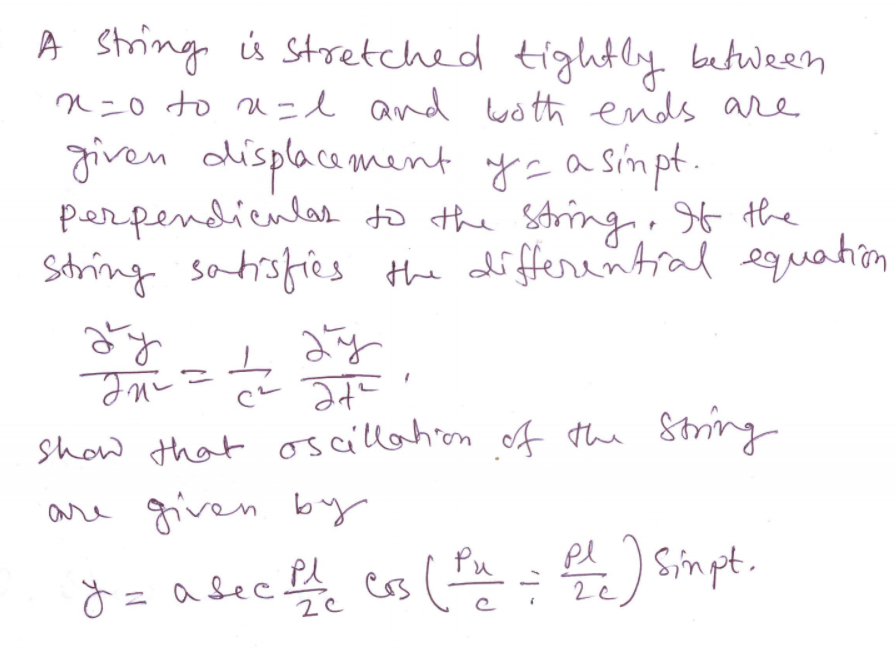 A string is stretched tightly between
x=0 to x=l and both ends are
given displacement y= a sin pt.
perpendicular to the string. If the
string satisfies the differential equation
∂²y/∂x² = 1/c² ∂²y/∂t² ,
show that oscillation of the string
are given by
y = a sec pl/2c cos (px/c ÷ pl/2c) sin pt.